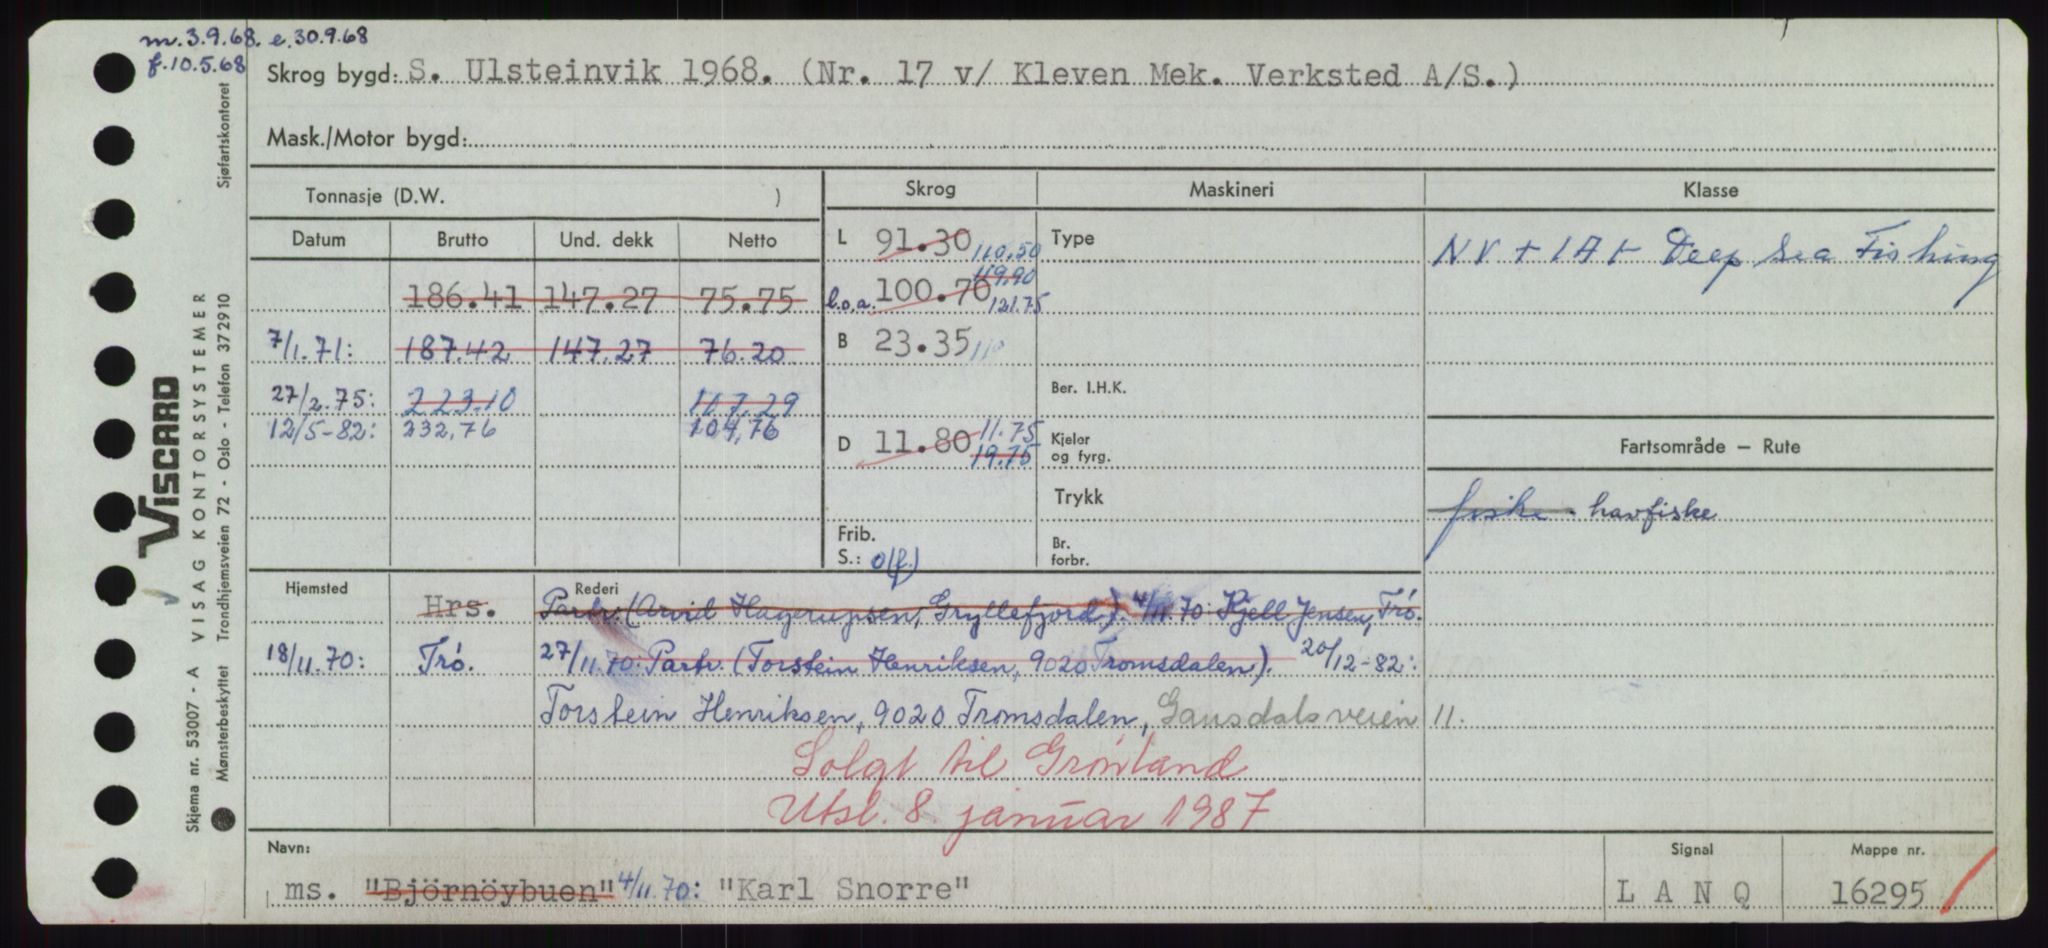 m. 3.9.68. e. 30.9.68
f. 10.5.68
Skrog bygd: S. Ulsteinvik 1968. (Nr. 17 v/ Kleven Mek. Verksted A/S.)
Mask./Motor bygd:
Tonnasje (D.W. )
Skrog Maskineri Klasse
Datum Brutto Und. dekk Netto
L 91.30 110.50 Type
NV + 1A+ Deep sea Fishing
186.41 147.27 75.75
l.o.a. 100.70 119.90 121.75
7/1.71: 187.42 147.27 76.20
B 23.35
27/2.75: 223.10 107.29
Ber. I.H.K.
12/5-82: 232,76 104,76
D 11.80 11.75 19.75
Kjeler og fyrg.
Fartsområde — Rute
Trykk
fiske - havfiske
Frib.
S.: 0(f.)
Br. forbr.
Hjemsted Rederi
Hrs. Partr. (Arvid Hagerupsen, Gryllefjord). 4/11.70: Kjell Jensen, Trö.
18/11.70: Trö. 27/11.70: Partr. (Torstein Henriksen, 9020 Tromsdalen). 20/12-82:
Torstein Henriksen, 9020 Tromsdalen, Gausdalsveien 11.
Solgt til Grønland
Utsl. 8. januar 1987
Navn: Signal Mappe nr.
ms. "Björnöybuen" 4/11.70: "Karl Snorre" L A N Q 16295
Skjema nr. 53007 - A VISAG KONTORSYSTEMER Sjøfartskontoret
Mønsterbeskyttet Trondhjemsveien 72 - Oslo - Telefon 372910
VISCARD